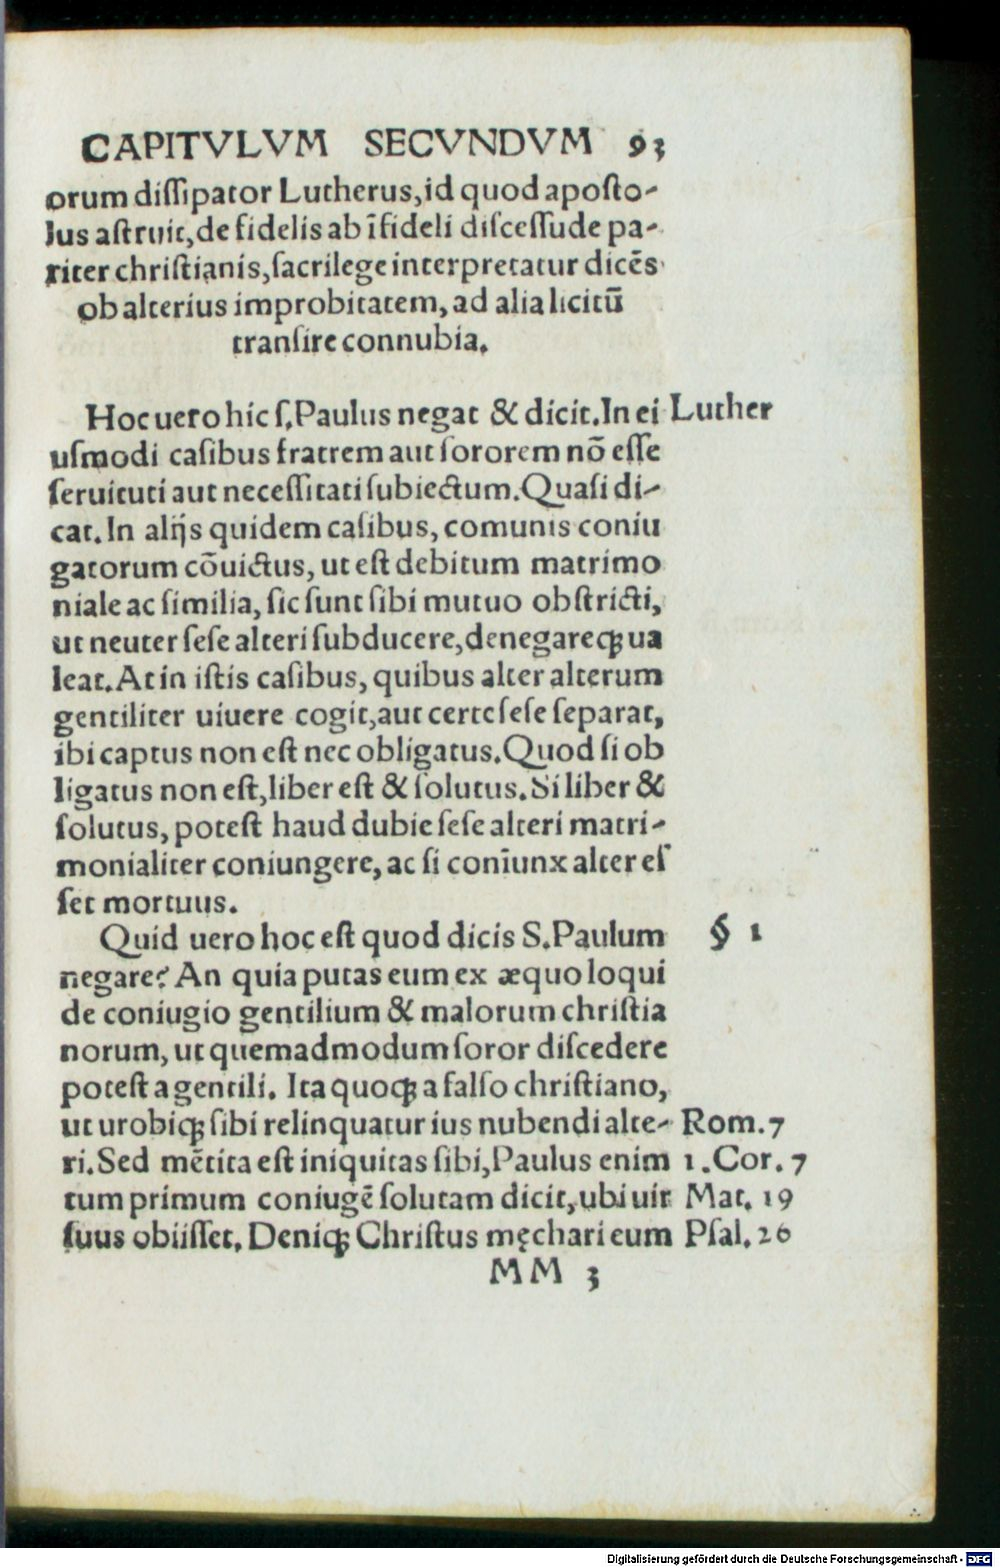 CAPITVLVM SECVNDVM 93
orum dissipator Lutherus, id quod aposto-
lus astruit, de fidelis ab īfideli discessu de pa-
riter christianis, sacrilege interpretatur dicēs
ob alterius improbitatem, ad alia licitū
transire connubia.
Hoc uero hic s. Paulus negat & dicit. In ei Luther
usmodi casibus fratrem aut sororem nō esse
seruituti aut necessitati subiectum. Quasi di-
cat. In alijs quidem casibus, comunis coniu
gatorum cōuictus, ut est debitum matrimo
niale ac similia, sic sunt sibi mutuo obstricti,
ut neuter sese alteri subducere, denegareq; ua
leat. At in istis casibus, quibus alter alterum
gentiliter uiuere cogit, aut certe sese separat,
ibi captus non est nec obligatus. Quod si ob
ligatus non est, liber est & solutus. Si liber &
solutus, potest haud dubie sese alteri matri-
monialiter coniungere, ac si coniunx alter es
set mortuus.
Quid uero hoc est quod dicis S. Paulum § 1
negare? An quia putas eum ex æquo loqui
de coniugio gentilium & malorum christia
norum, ut quemadmodum soror discedere
potest a gentili. Ita quoq; a falso christiano,
ut utrobiq; sibi relinquatur ius nubendi alte- Rom. 7
ri. Sed mētita est iniquitas sibi, Paulus enim 1. Cor. 7
tum primum coniugē solutam dicit, ubi uir Mat. 19
suus obiisset. Deniq; Christus męchari eum Psal. 26
MM 3
Digitalisierung gefördert durch die Deutsche Forschungsgemeinschaft - DFG